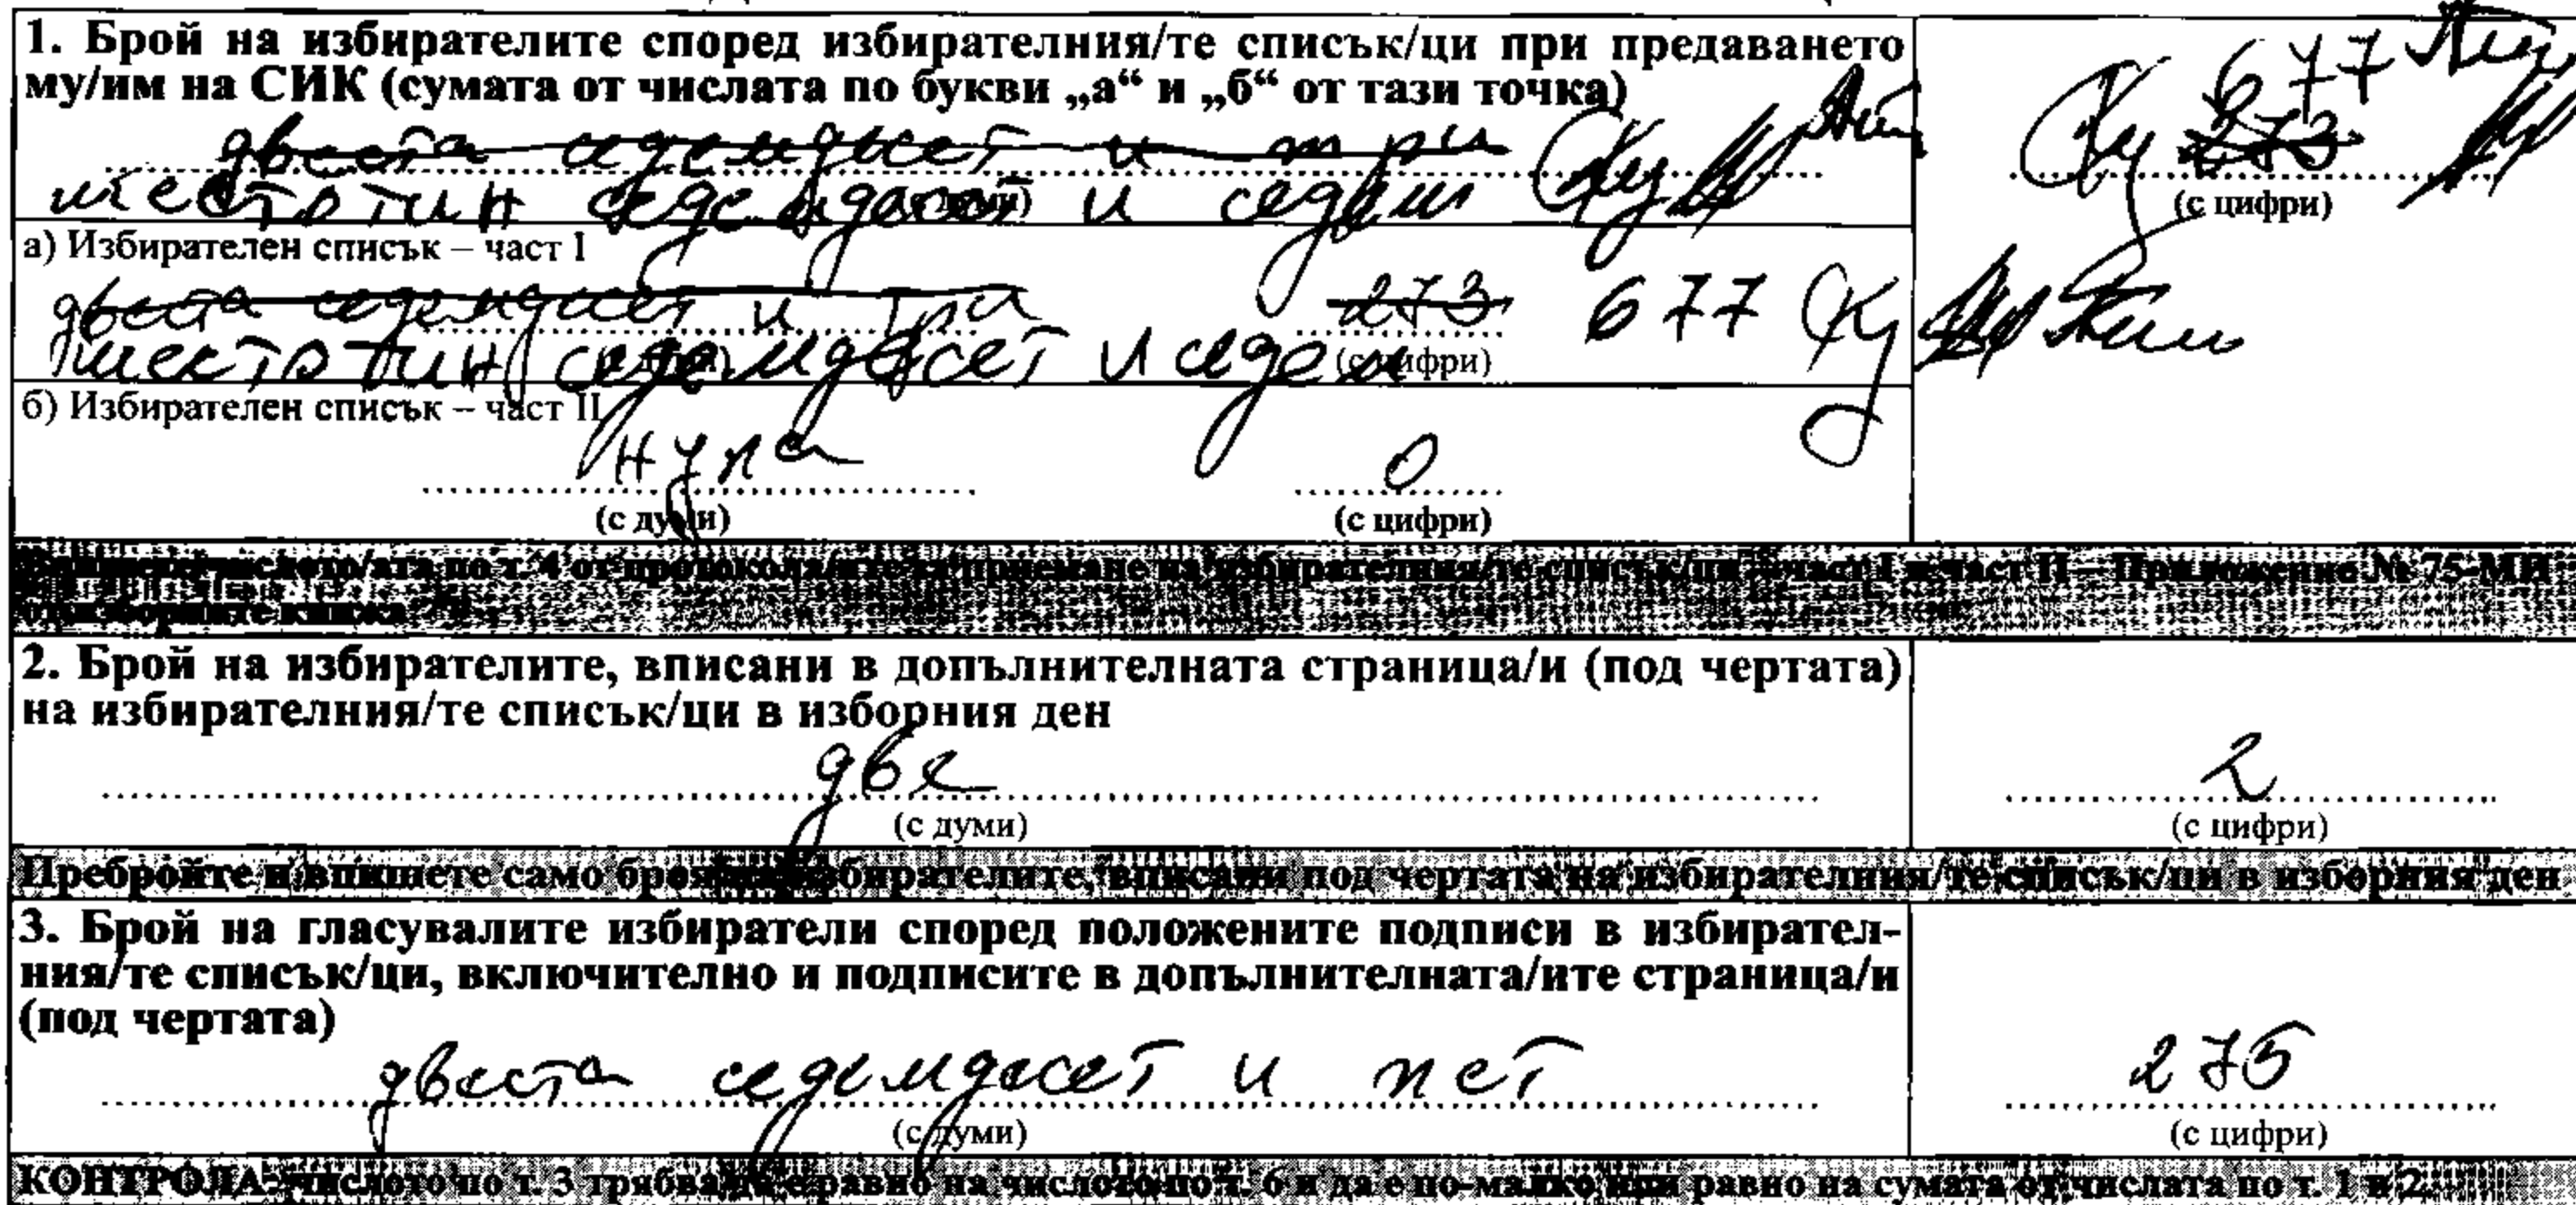 1. Брой на избирателите според избирателния/те списък/ци при предаването
му/им на СИК (сумата от числата по букви „а“ и „б“ от тази точка)
677
двеста седемдесет и три
273
шестотин седемдесет и седем
(с цифри)
а) Избирателен списък – част I
двеста седемдесет и три 273 677
шестотин седемдесет и седем (с цифри)
б) Избирателен списък – част II
нула 0
(с думи) (с цифри)
по т. 4 от протокола приемане на избирателния/те списък/ци – част I и част II – Приложение № 75-МИ
2. Брой на избирателите, вписани в допълнителната страница/и (под чертата)
на избирателния/те списък/ци в изборния ден
две 2
(с думи) (с цифри)
Пребройте и впишете само броя на избирателите, вписани под чертата на избирателния/те списък/ци в изборния ден
3. Брой на гласувалите избиратели според положените подписи в избирател-
ния/те списък/ци, включително и подписите в допълнителната/ите страница/и
(под чертата)
двеста седемдесет и пет 275
(с думи) (с цифри)
КОНТРОЛА: числото по т. 3 трябва да е равно на числото по т. 6 и да е по-малко или равно на сумата от числата по т. 1 и 2.